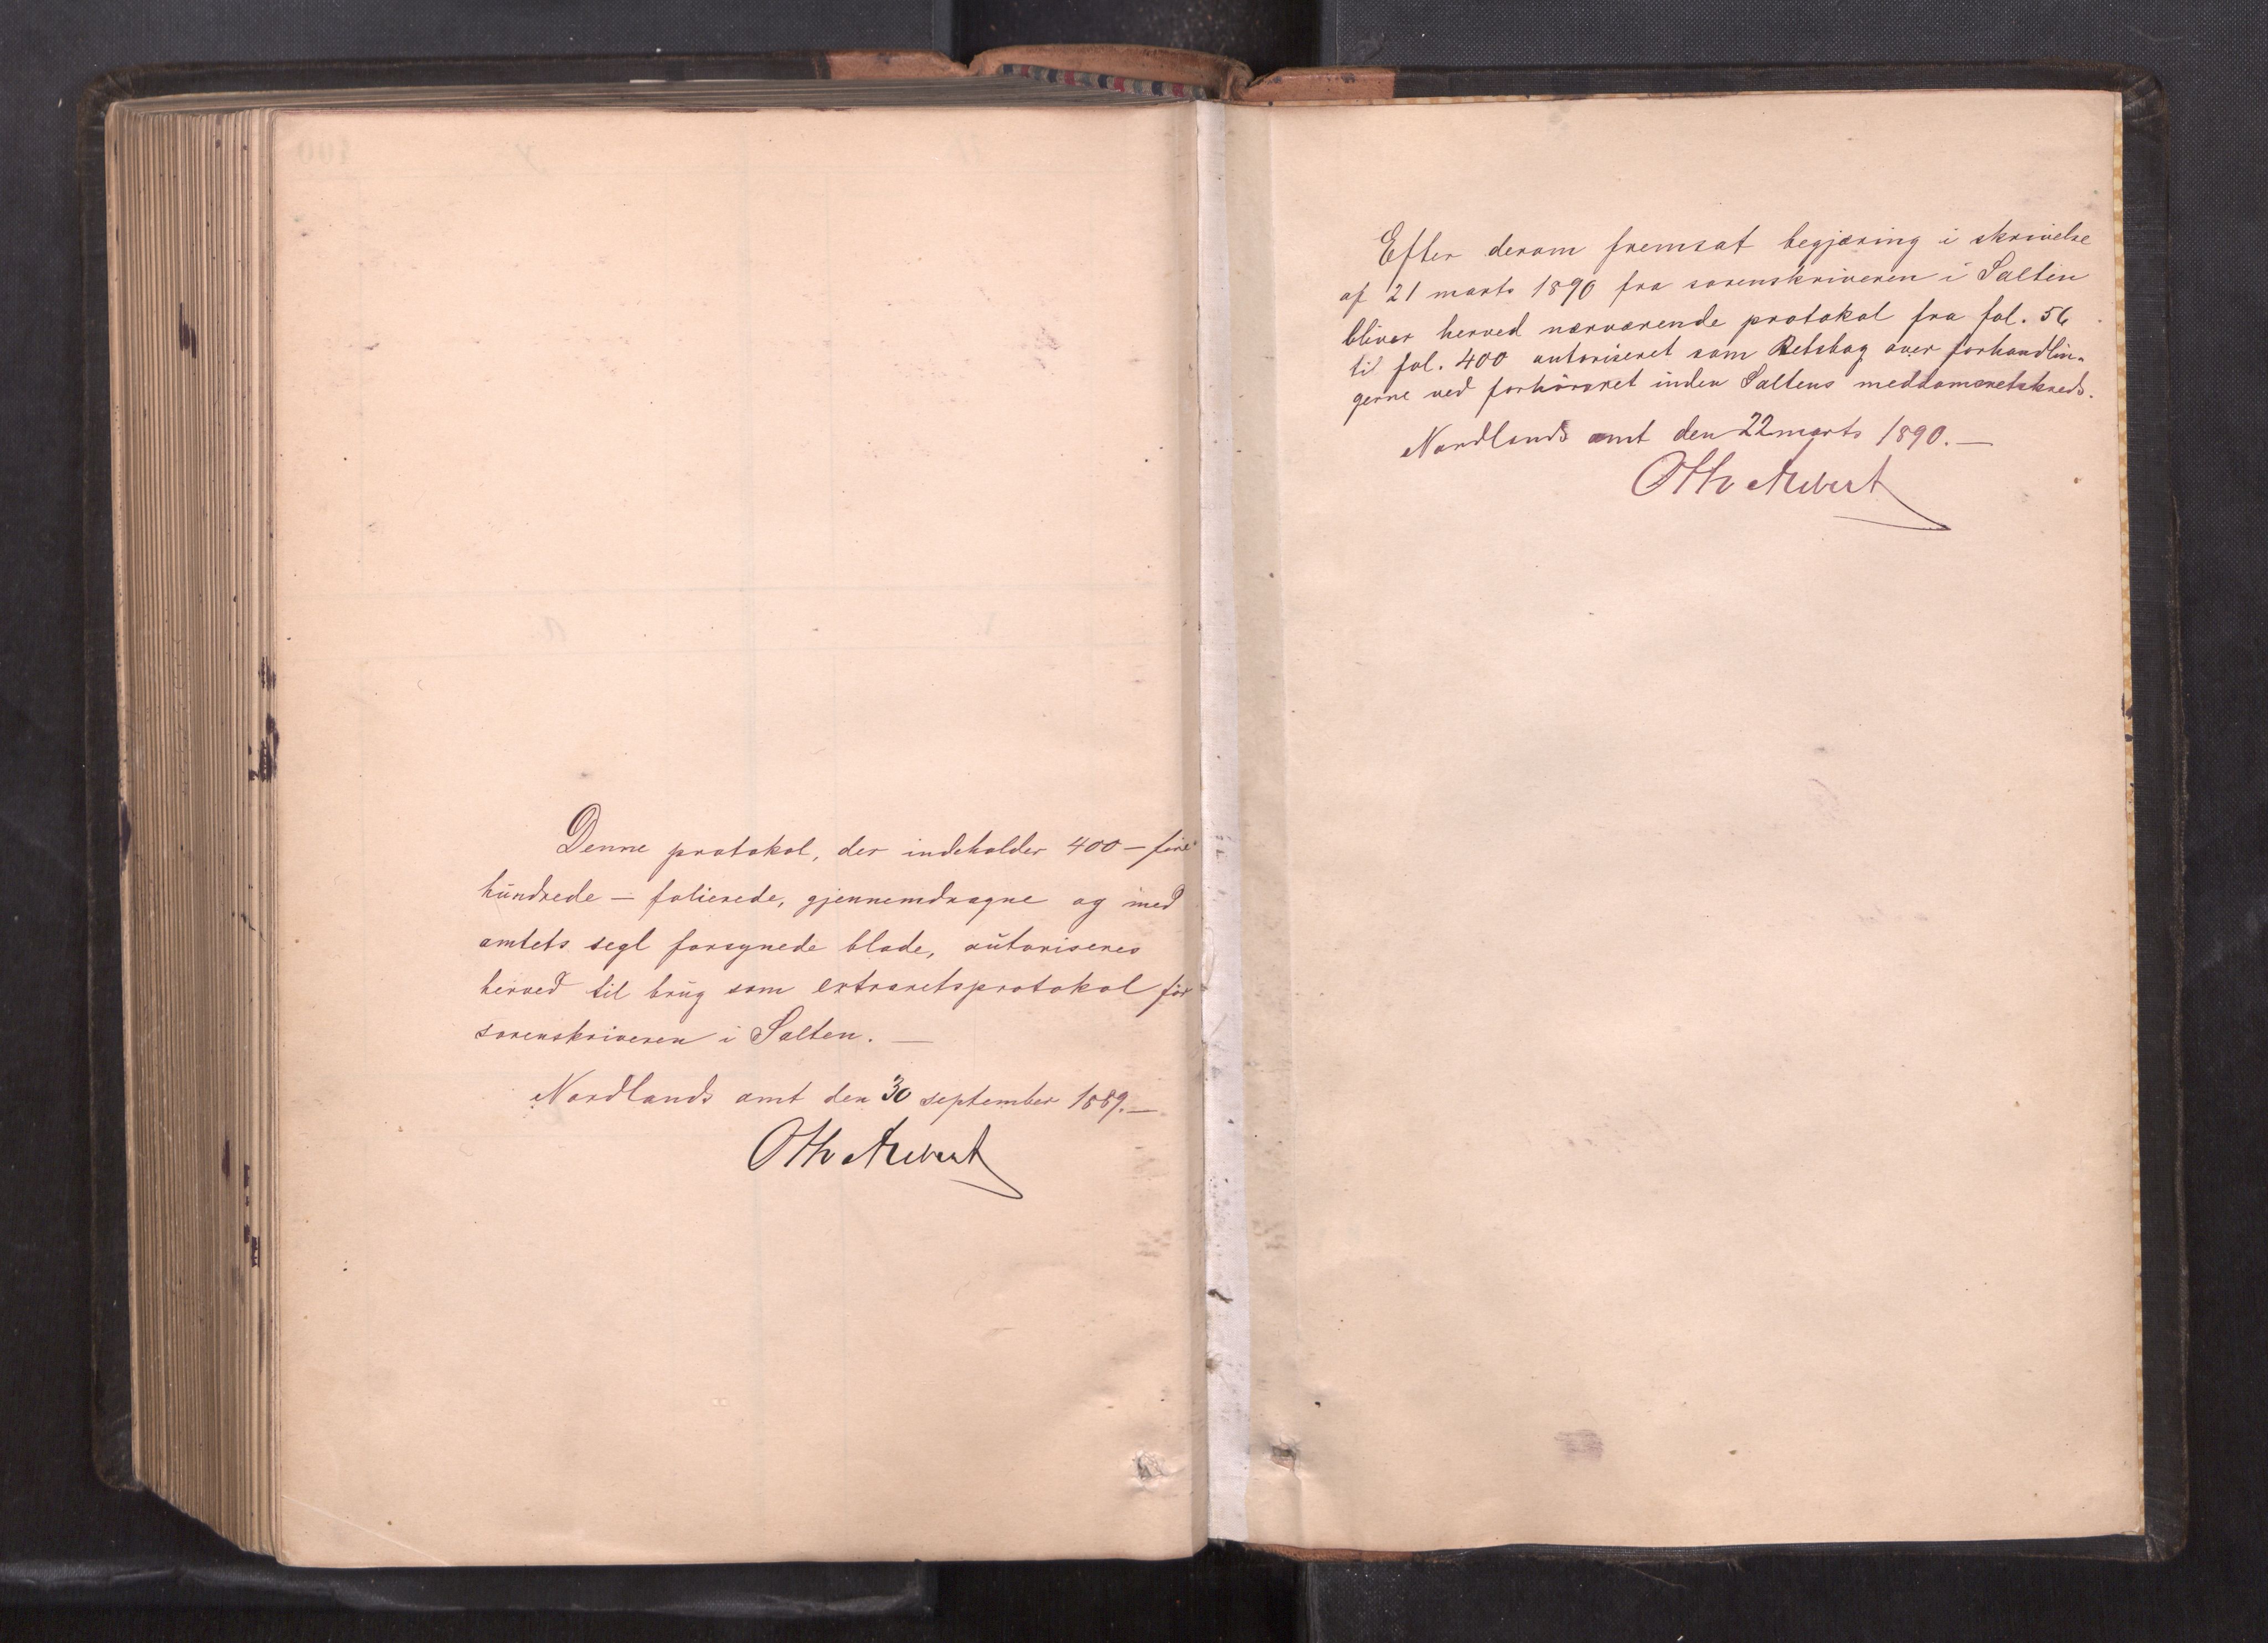 Denne protokol, der indeholder 400 – fire
hundrede – folierede, gjennemdragne og med
amtets segl forsynede blade, autoriseres
herved til brug som extraretsprotokol for
sorenskriveren i Salten. —
Nordlands amt den 30 september 1889. —
Efter derom fremsat begjæring i skrivelse
af 21 marts 1890 fra sorenskriveren i Salten
bliver herved nærværende protokol fra fol. 56
til fol. 400 autoriseret som Retsbog over forhandlin-
gerne ved forhörsret inden Saltens meddomsretskreds.
Nordlands amt den 22 marts 1890. —